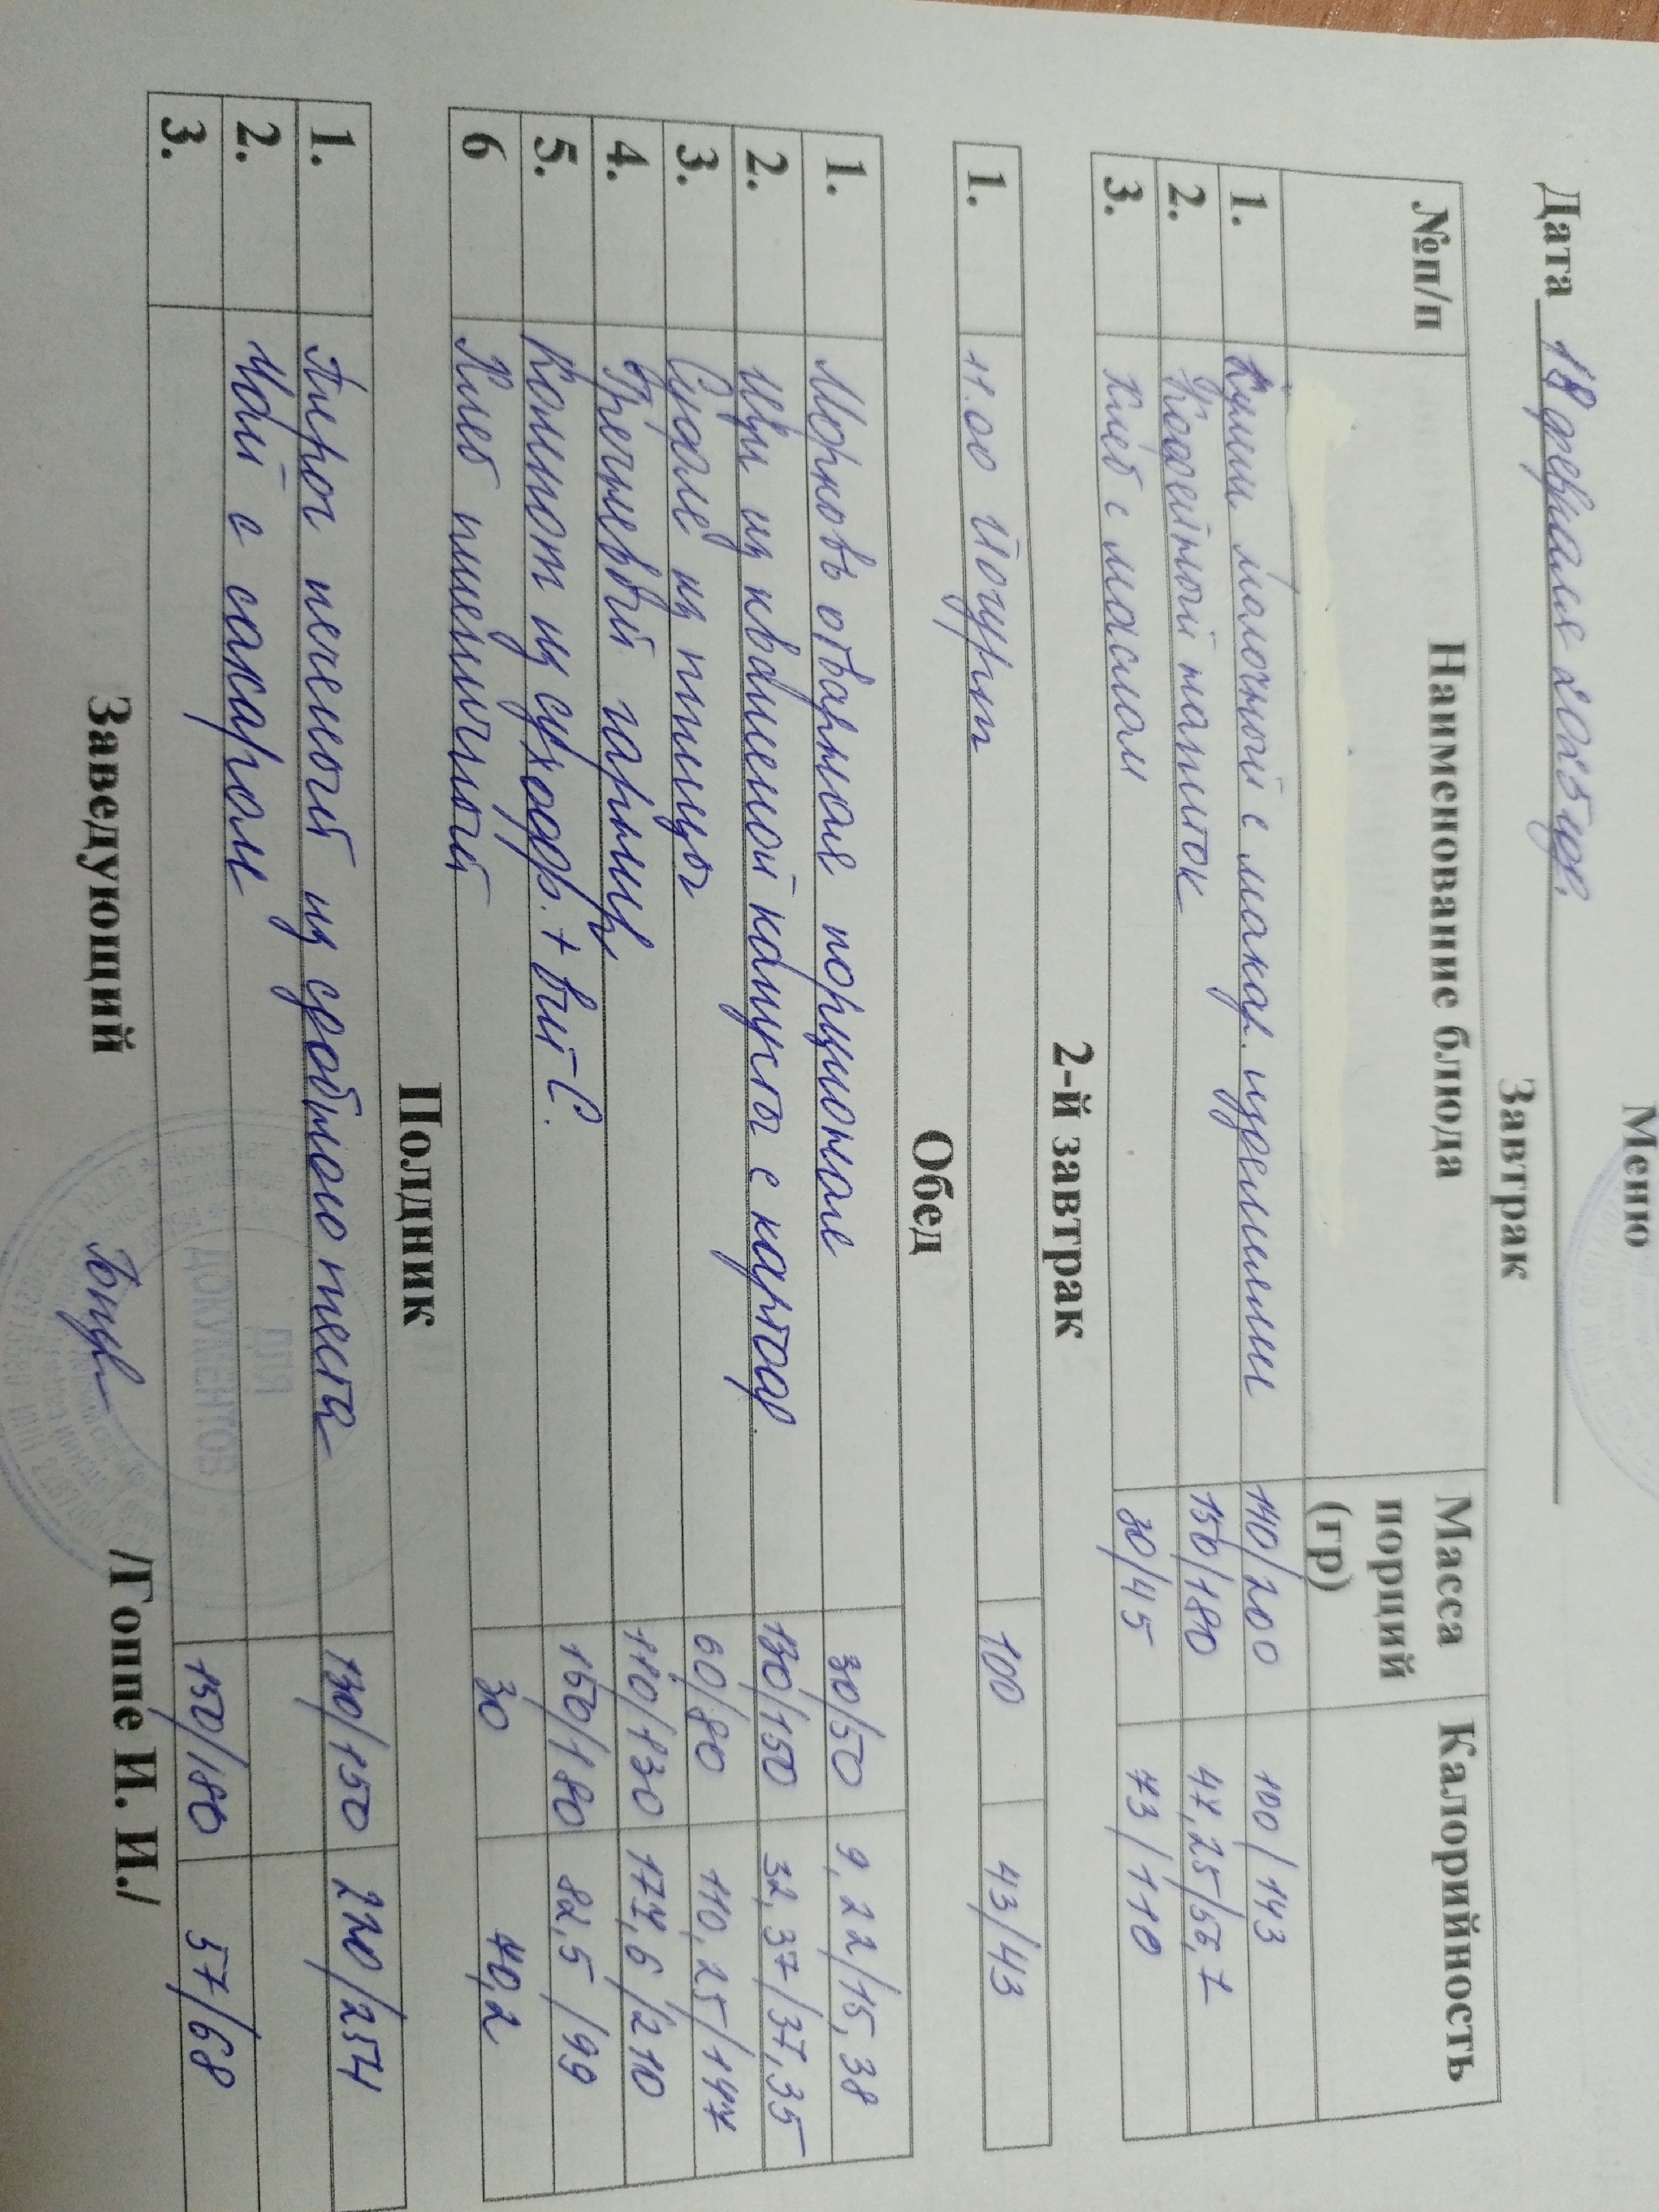 Меню
Дата 18 февраля 2025 год.
Завтрак
№п/п Наименование блюда Масса порций (гр) Калорийность
1. молочный с макар. изделиями 140/200 100/143
2. Кофейный напиток 150/180 47,25/56,7
3. Хлеб с маслом 30/45 73/110
2-й завтрак
1. 11.00 Йогурт 100 43/43
Обед
1. Морковь отварная порционная 30/50 9,22/15,38
2. Щи из квашеной капусты с картоф. 130/150 32,37/37,35
3. из птицы 60/80 110,25/147
4. Гречневый гарнир 110/130 177,6/210
5. Компот из сухофр. + вит С. 150/180 82,5/99
6 Хлеб пшеничный 30 70,2
Полдник
1. Пирог печеный из сдобного теста 130/150 220/254
2. Чай с сахаром
3. 150/180 57/68
Заведующий /Гоппе И. И./
ДЛЯ
ДОКУМЕНТОВ